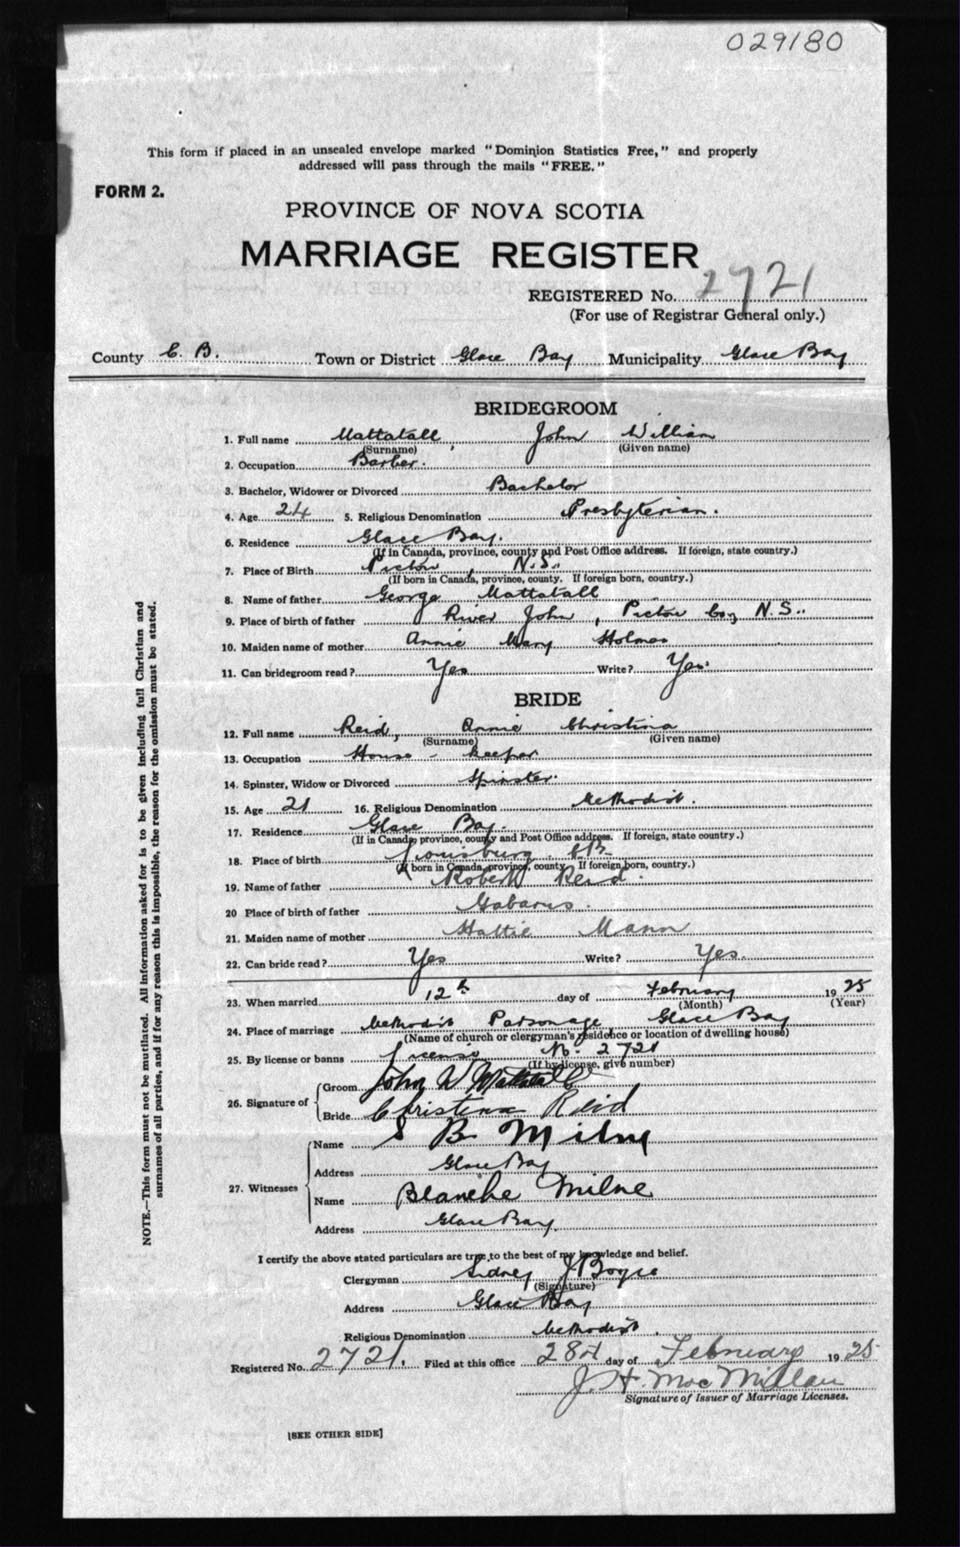 029180
This form if placed in an unsealed envelope marked "Dominion Statistics Free," and properly
addressed will pass through the mails "FREE."
FORM 2.
PROVINCE OF NOVA SCOTIA
MARRIAGE REGISTER
REGISTERED No. 2721
(For use of Registrar General only.)
County C. B. Town or District Glace Bay Municipality Glace Bay
BRIDEGROOM
1. Full name Mattatall, John William
(Surname) (Given name)
2. Occupation Barber.
3. Bachelor, Widower or Divorced Bachelor
4. Age 24 5. Religious Denomination Presbyterian.
6. Residence Glace Bay.
(If in Canada, province, county and Post Office address. If foreign, state country.)
7. Place of Birth Pictou, N.S.
(If born in Canada, province, county. If foreign born, country.)
8. Name of father George Mattatall
9. Place of birth of father River John, Pictou Coy N.S..
10. Maiden name of mother Annie Mary Holmes
11. Can bridegroom read? Yes Write? Yes.
BRIDE
12. Full name Reid, Annie Christina
(Surname) (Given name)
13. Occupation House-keeper
14. Spinster, Widow or Divorced Spinster.
15. Age 21 16. Religious Denomination Methodist.
17. Residence Glace Bay.
(If in Canada, province, county and Post Office address. If foreign, state country.)
18. Place of birth Louisburg, CB.
(If born in Canada, province, county. If foreign born, country.)
19. Name of father Robert Reid.
20 Place of birth of father Gabarus.
21. Maiden name of mother Hattie Mann
22. Can bride read? Yes Write? Yes.
23. When married 12th day of February 1925
(Month) (Year)
24. Place of marriage Methodist Parsonage Glace Bay
(Name of church or clergyman's residence or location of dwelling house)
25. By license or banns License No. 2721
(If by license, give number)
26. Signature of Groom John W Mattatall
Bride Christina Reid
27. Witnesses Name S B Milne
Address Glace Bay
Name Blanche Milne
Address Glace Bay.
I certify the above stated particulars are true to the best of my knowledge and belief.
Clergyman Sidney J Boyce
(Signature)
Address Glace Bay
Religious Denomination Methodist.
Registered No. 2721. Filed at this office 28th day of February 1925
J. H. MacMillan
Signature of Issuer of Marriage Licenses.
[SEE OTHER SIDE]
NOTE.—This form must not be mutilated. All information asked for is to be given including full Christian and
surnames of all parties, and if for any reason this is impossible, the reason for the omission must be stated.